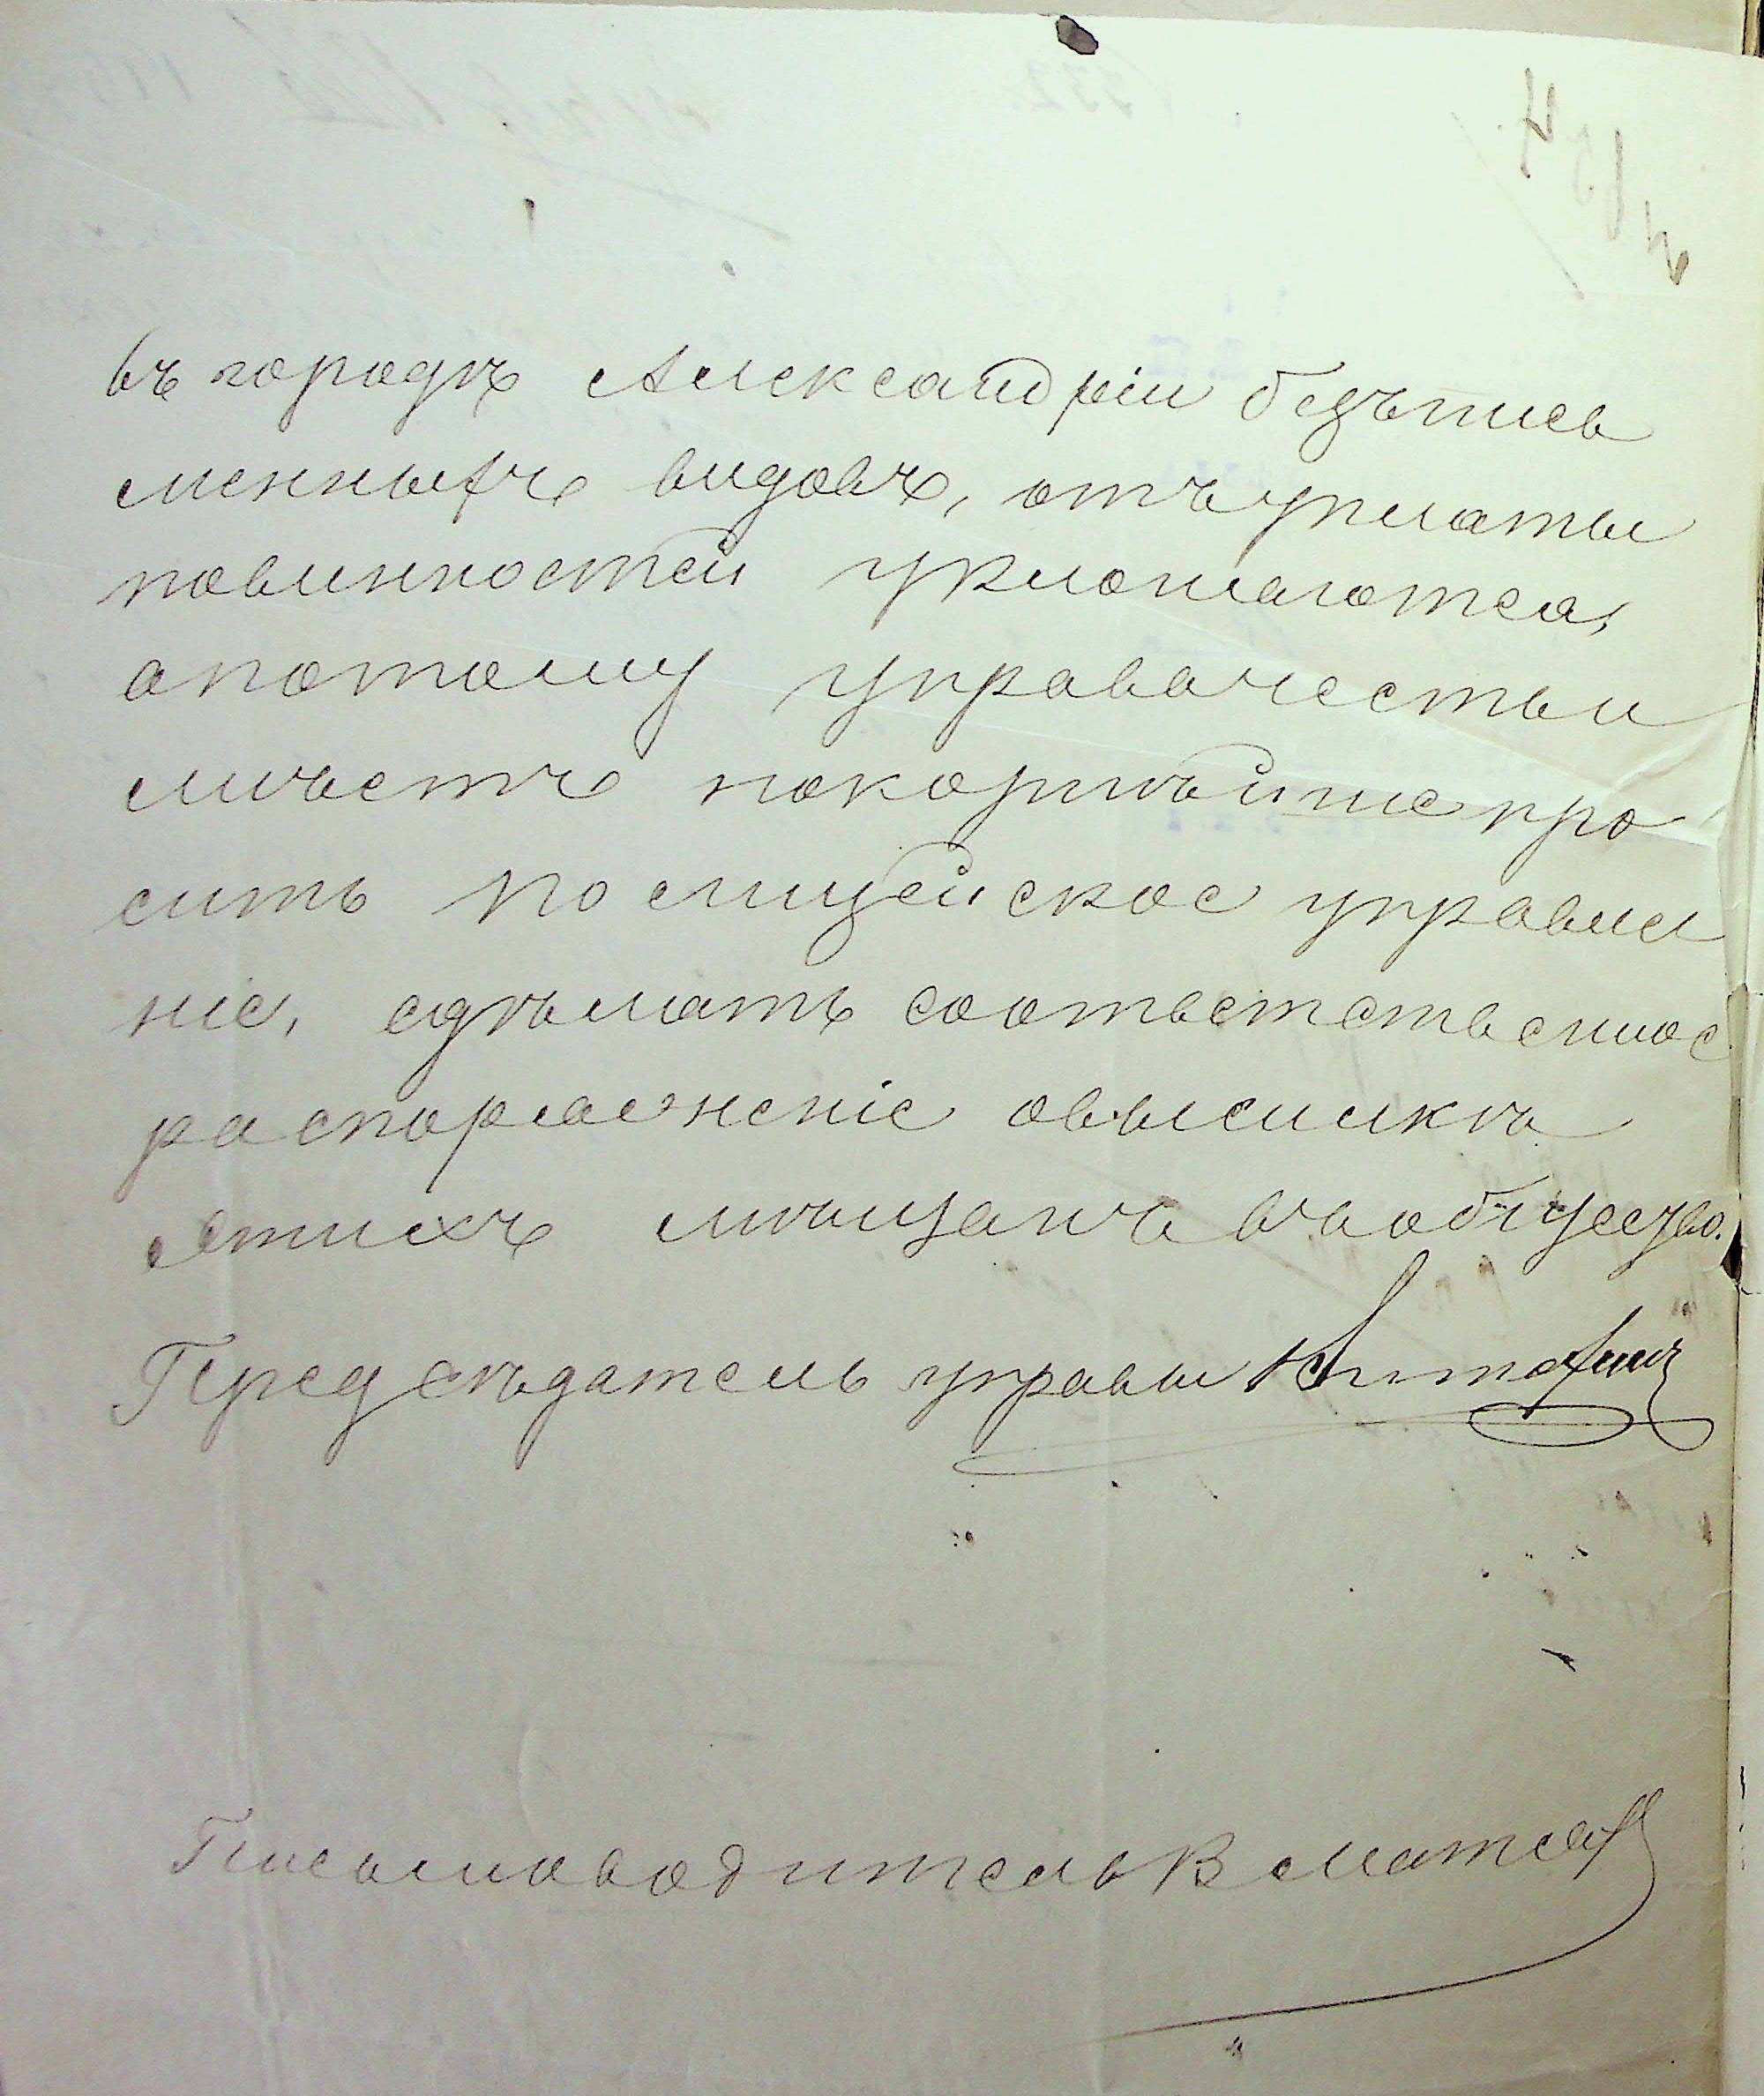 въ городѣ Александріи безъ пись
менныхъ видовъ, отъ уплаты
повинностей уклоняются,
а потому управа честь и
мѣетъ покорнѣйше про
сить полицейское управле
ніе, сдѣлать соответственное
распоряженіе о высылкѣ
этихъ мѣщанъ въ общество.
Предсѣдатель управы
Письмоводитель В